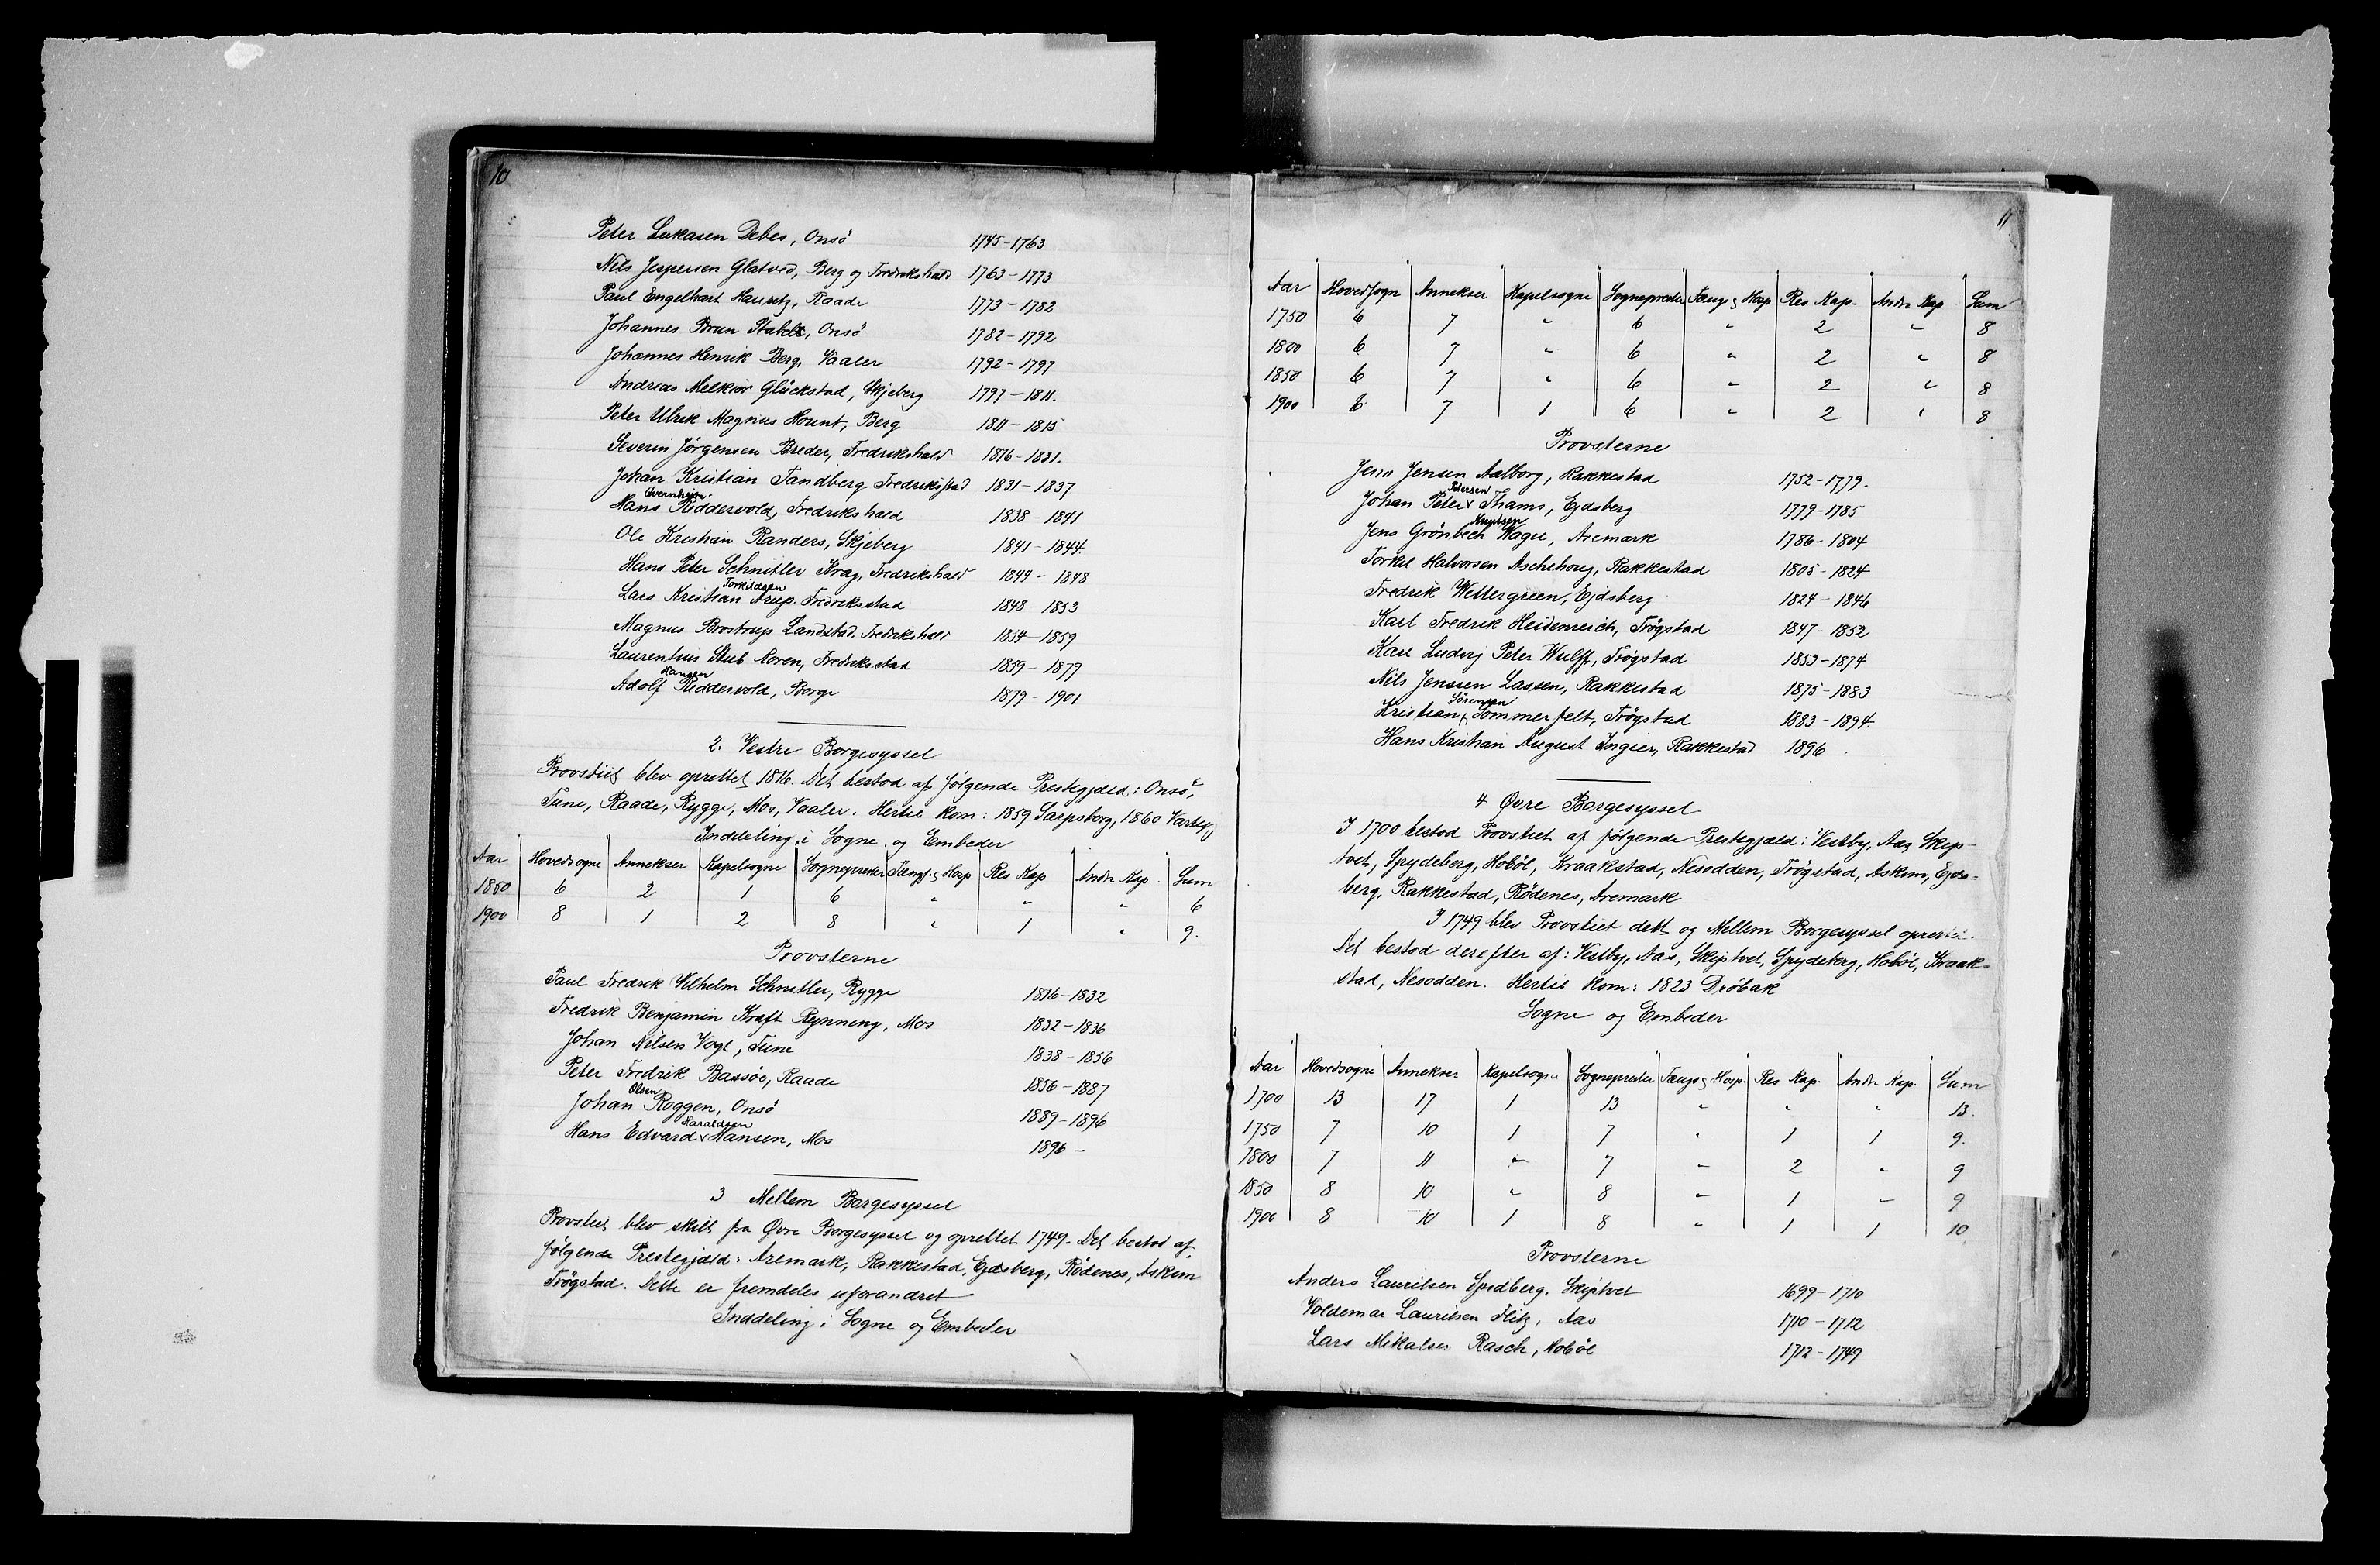 10
Peter Lukasen Debes, Onsö 1745-1763
Nils Jespersen Glatved, Berg og Fredrikshald 1763-1773
Paul Engelhart Hauritz, Raade 1773-1782
Johannes Brun, Onsö 1782-1792
Johannes Henrik Berg, Vaaler 1792-1797
Andreas Melkior Glückstad, Skjeberg 1797-1811.
Peter Ulrik Magnus Hount, Berg 1811-1815
Severin Jörgensen Breder, Fredrikshald 1816-1831.
Johan Kristian Tandberg Fredriksstad 1831-1837
Hans Overnhjem Riddervold, Fredrikshald 1838-1841
Ole Kristian Randers, Skjeberg 1841-1844
Hans Peter Schnitler Krag, Fredrikshald 1844-1848
Lars Kristian Torkildsen Arup. Fredriksstad 1848-1853
Magnus Brostrup Landstad. Fredrikshald 1854-1859
Laurentius Stub Koren, Fredriksstad 1859-1879
Adolf Hansen Riddervold, Borge 1879-1901
2. Vestre Borgesyssel
Provstiet blev oprettet 1816. Det bestod af følgende Prestegjæld: Onsö,
Tune, Raade, Rygge, Mos, Vaaler. Hertil kom: 1859 Sarpsborg, 1860 Varteig
Inddeling i Sogne og Embeder
Aar Hovedsogne Annekser Kapelsogne Sogneprester Fængs & Hosp Res Kap Andr Kap. Sum
1850 6 2 1 6 " " " 6
1900 8 1 2 8 " 1 " 9.
Provsterne
Paul Fredrik Vilhelm Schnitler, Rygge 1816-1832
Fredrik Benjamin Kraft Rynning, Mos 1832-1836
Johan Nilsen Vogt, Tune 1838-1856
Peter Fredrik Bassöe, Raade 1856-1887
Johan Olsen Roggen, Onsö 1889-1896
Hans Edvard Haraldsen Hansen, Mos 1896-
3 Mellem Borgesyssel
Provstiet blev skilt fra Øvre Borgesyssel og oprettet 1749. Det bestod af
følgende Prestegjæld: Aremark, Rakkestad, Ejdsberg, Rödenes, Askim
Trögstad. Dette er fremdeles uforandret
Inddeling i Sogne og Embeder
11
Aar Hovedsogn Annekser Kapelsogne Sogneprester Fængs & Hosp Res Kap. Andr Kap Sum
1750 6 7 " 6 " 2 " 8
1800 6 7 " 6 " 2 " 8
1850 6 7 " 6 " 2 " 8
1900 6 7 1 6 " 2 " 8
Provsterne
Jens Jensen Aalborg, Rakkestad 1752-1779.
Johan Peter Petersen Thams, Ejdsberg 1779-1785
Jens Grönbech Knudsen Wagn, Aremark 1786-1804
Torkel Halvorsen Aschehoug, Rakkestad 1805-1824
Fredrik Wettergreen, Ejdsberg 1824-1846
Karl Fredrik Heidenreich, Trögstad 1847-1852
Karl Ludvig Peter Wulff, Trögstad 1853-1874
Nils Jenssen Lassen, Rakkestad 1875-1883
Kristian Sörensen Sommerfelt, Trögstad 1883-1894
Hans Kristian August Ingier, Rakkestad 1896
4 Øvre Borgesyssel
I 1700 bestod Provstiet af følgende Prestegjæld: Vestby, Aas, Skip-
tvet, Spydeberg, Hobøl, Kraakstad, Nesodden, Trögstad, Askim, Ejds-
berg, Rakkestad, Rödenes, Aremark
I 1749 blev Provstiet delt og Mellem Borgesyssel oprettet.
Det bestod derefter af: Vestby, Aas, Skiptvet, Spydeberg, Hobøl, Kraak-
stad, Nesodden. Hertil kom: 1823 Dröbak
Sogne og Embeder
Aar Hovedsogne Annekser Kapelsogne Sogneprester Fængs & Hosp. Res Kap. Andr Kap. Sum
1700 13 17 1 13 " " " 13.
1750 7 10 1 7 " 1 1 9.
1800 7 11 " 7 " 2 " 9
1850 8 10 " 8 " 1 " 9
1900 8 10 1 8 " 1 1 10
Provsterne
Anders Lauritsen Spidberg. Skiptvet 1699-1710
Voldemar Lauritsen Flitz, Aas 1710-1712
Lars Mikalsen Rasch, Hobøl 1712-1749